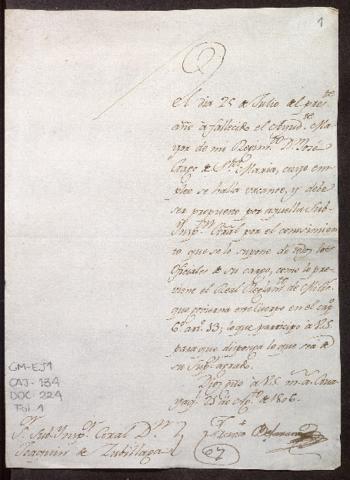 1
El dia 25 de Julio del pres.te
año á fallecido el Ayud.te Ma-
yor de mi Regim.to D.n Jose
de S.ta Maria, cuyo em-
pleo se halla vacante, y debe
ser propuesto por aquella Sub-
Insp.on Gral por el conocimien-
to que se le supone de todos los
Oficiales de su cargo, como lo pre-
viene el Real Reglam.to de Milic.s
que govierna este Cuerpo en el cap.o
6.o art.o 33; lo que participo á V.S.
para que disponga lo que sea de
su Sup.or agrado.
Dios gue á V.S. m.s a.s
25 de Ag.to de 1806.
S.r Sub-Insp.or Gral D.n
Joaquin de Zubillaga
67
GM-EJ1
CAJ-184
DOC-224
Fol-1